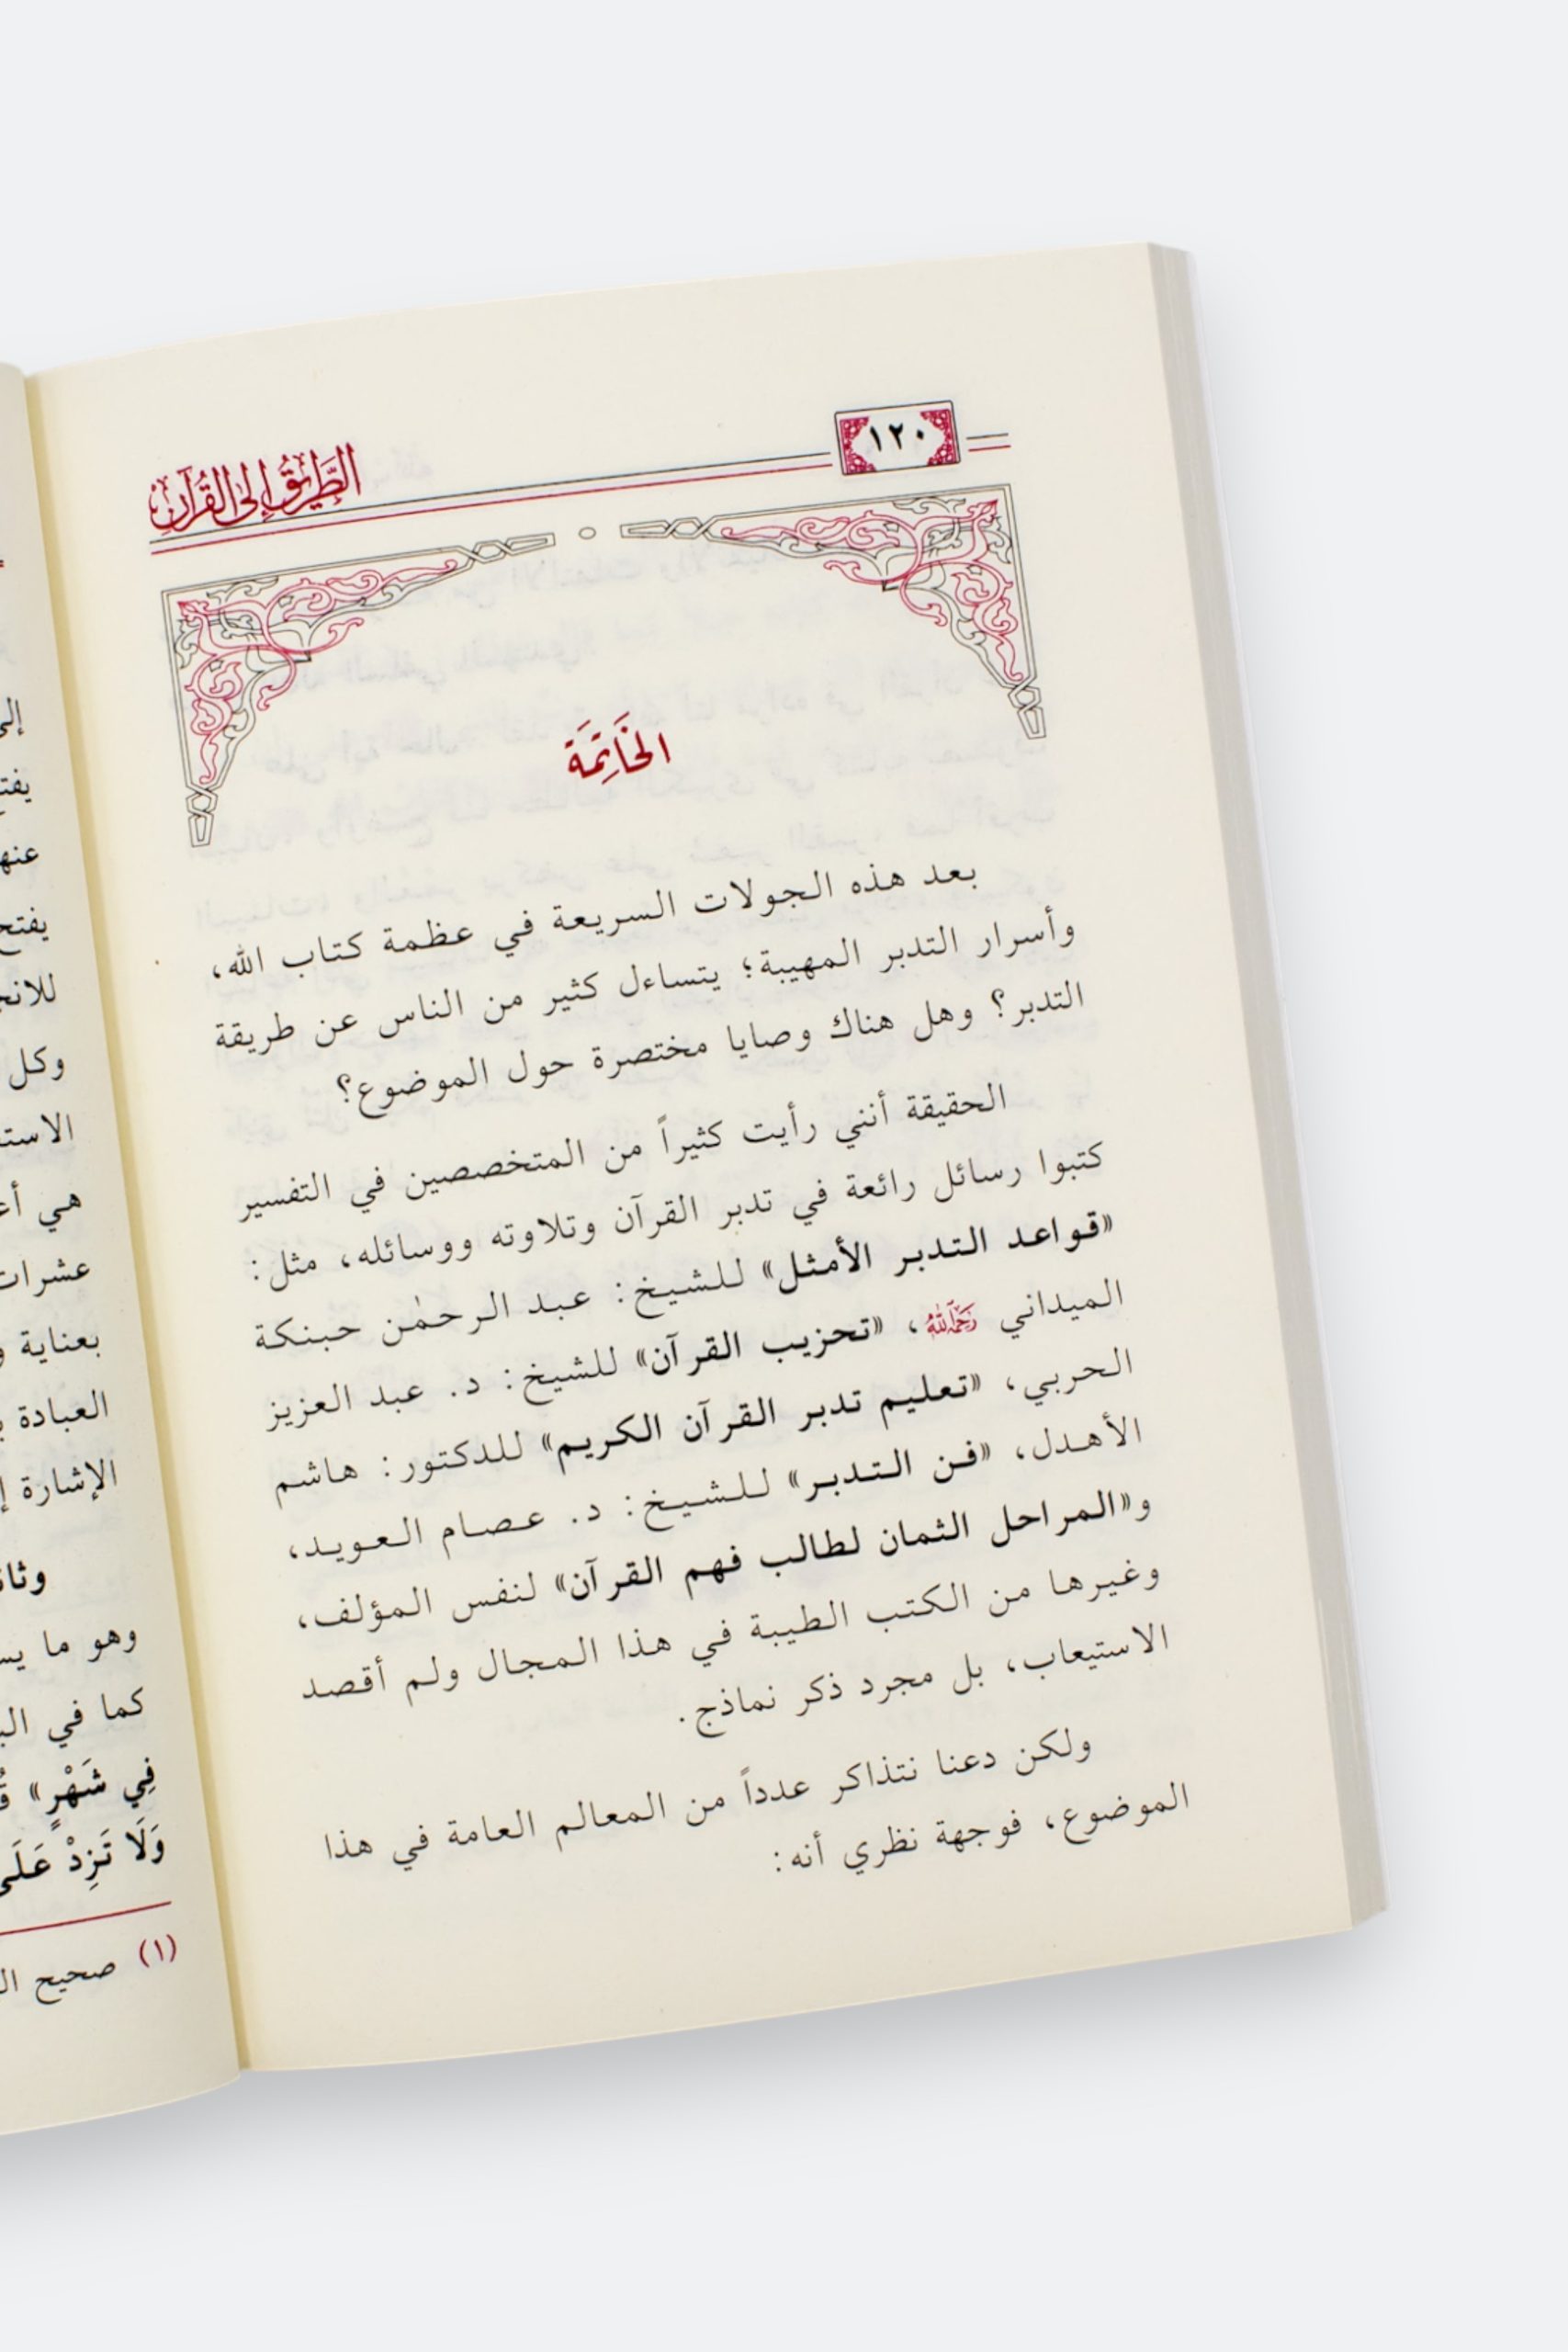 ١٢٠
الطَّرِيقُ إِلَى القُرْآن
الخَاتِمَة
بعد هذه الجولات السريعة في عظمة كتاب الله،
وأسرار التدبر المهيبة؛ يتساءل كثير من الناس عن طريقة
التدبر؟ وهل هناك وصايا مختصرة حول الموضوع؟
الحقيقة أنني رأيت كثيراً من المتخصصين في التفسير
كتبوا رسائل رائعة في تدبر القرآن وتلاوته ووسائله، مثل:
«قواعد التدبر الأمثل» للشيخ: عبد الرحمٰن حبنكة
الميداني رَحِمَهُ اللهُ، «تحزيب القرآن» للشيخ: د. عبد العزيز
الحربي، «تعليم تدبر القرآن الكريم» للدكتور: هاشم
الأهدل، «فن التدبر» للشيخ: د. عصام العويد،
و«المراحل الثمان لطالب فهم القرآن» لنفس المؤلف،
وغيرها من الكتب الطيبة في هذا المجال ولم أقصد
الاستيعاب، بل مجرد ذكر نماذج.
ولكن دعنا نتذاكر عدداً من المعالم العامة في هذا
الموضوع، فوجهة نظري أنه:
عنها
وكل
بعناية
العبادة
الإشارة
وهو ما
كما في
فِي شَهْرٍ»
وَلَا تَزِدْ عَلَى
(١) صحيح